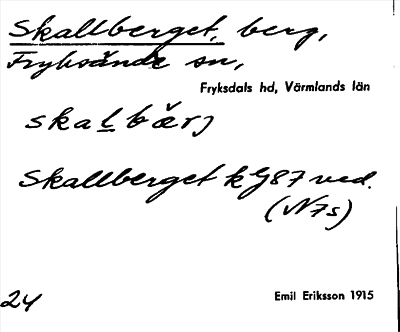 Skallberget, berg,
Fryksände sn,
Fryksdals hd, Värmlands län
skalbärj
Skallberget kG87 ved.
(N7s)
24
Emil Eriksson 1915